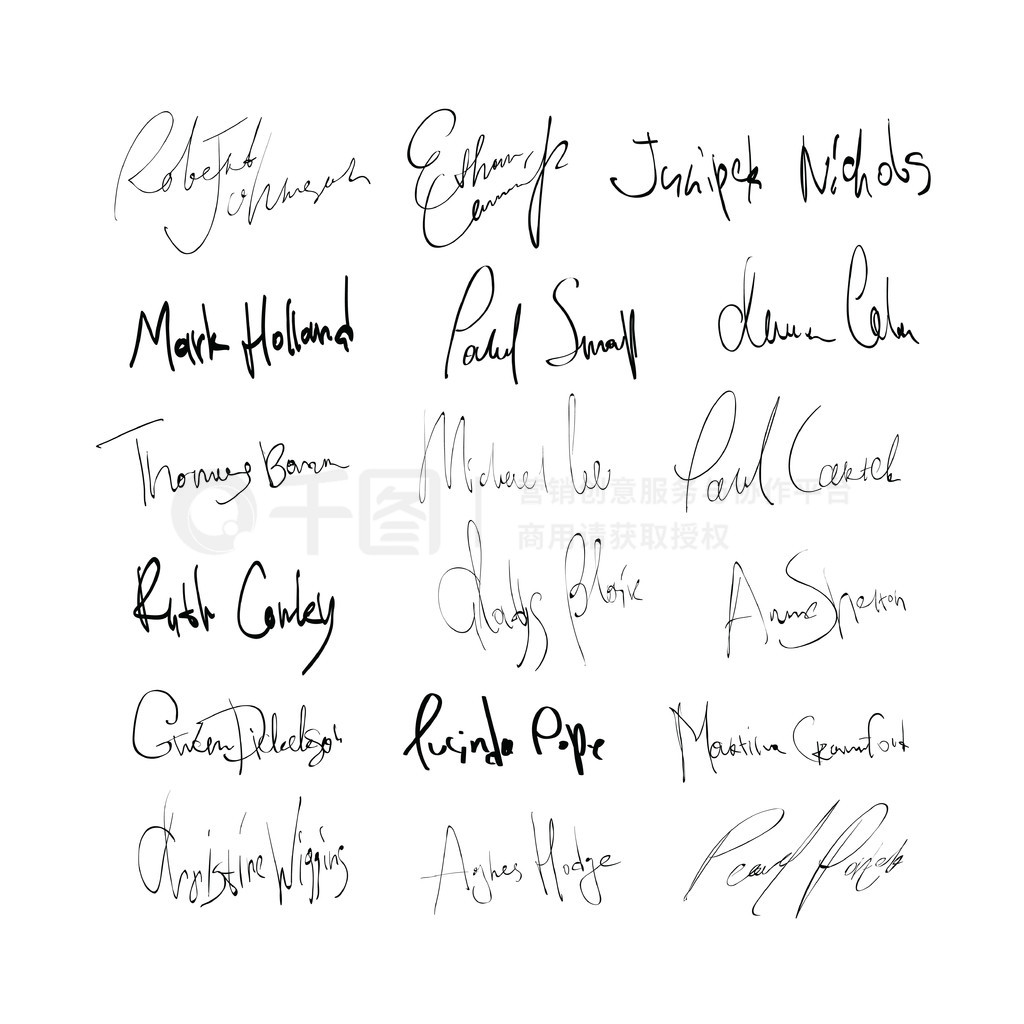 Robert Johnson
Ethan
Juniper Nichols
Mark Holland
Paul Small
Thomas
Michael Lee
Paul Carter
千图 营销创意服务与协作平台
商用请获取授权
Ruth Conley
Gladys Blair
Anna Shelton
Gwen Dickerson
Lucinda Pope
Martina Crawford
Christine Wiggins
Agnes Hodge
Pearl